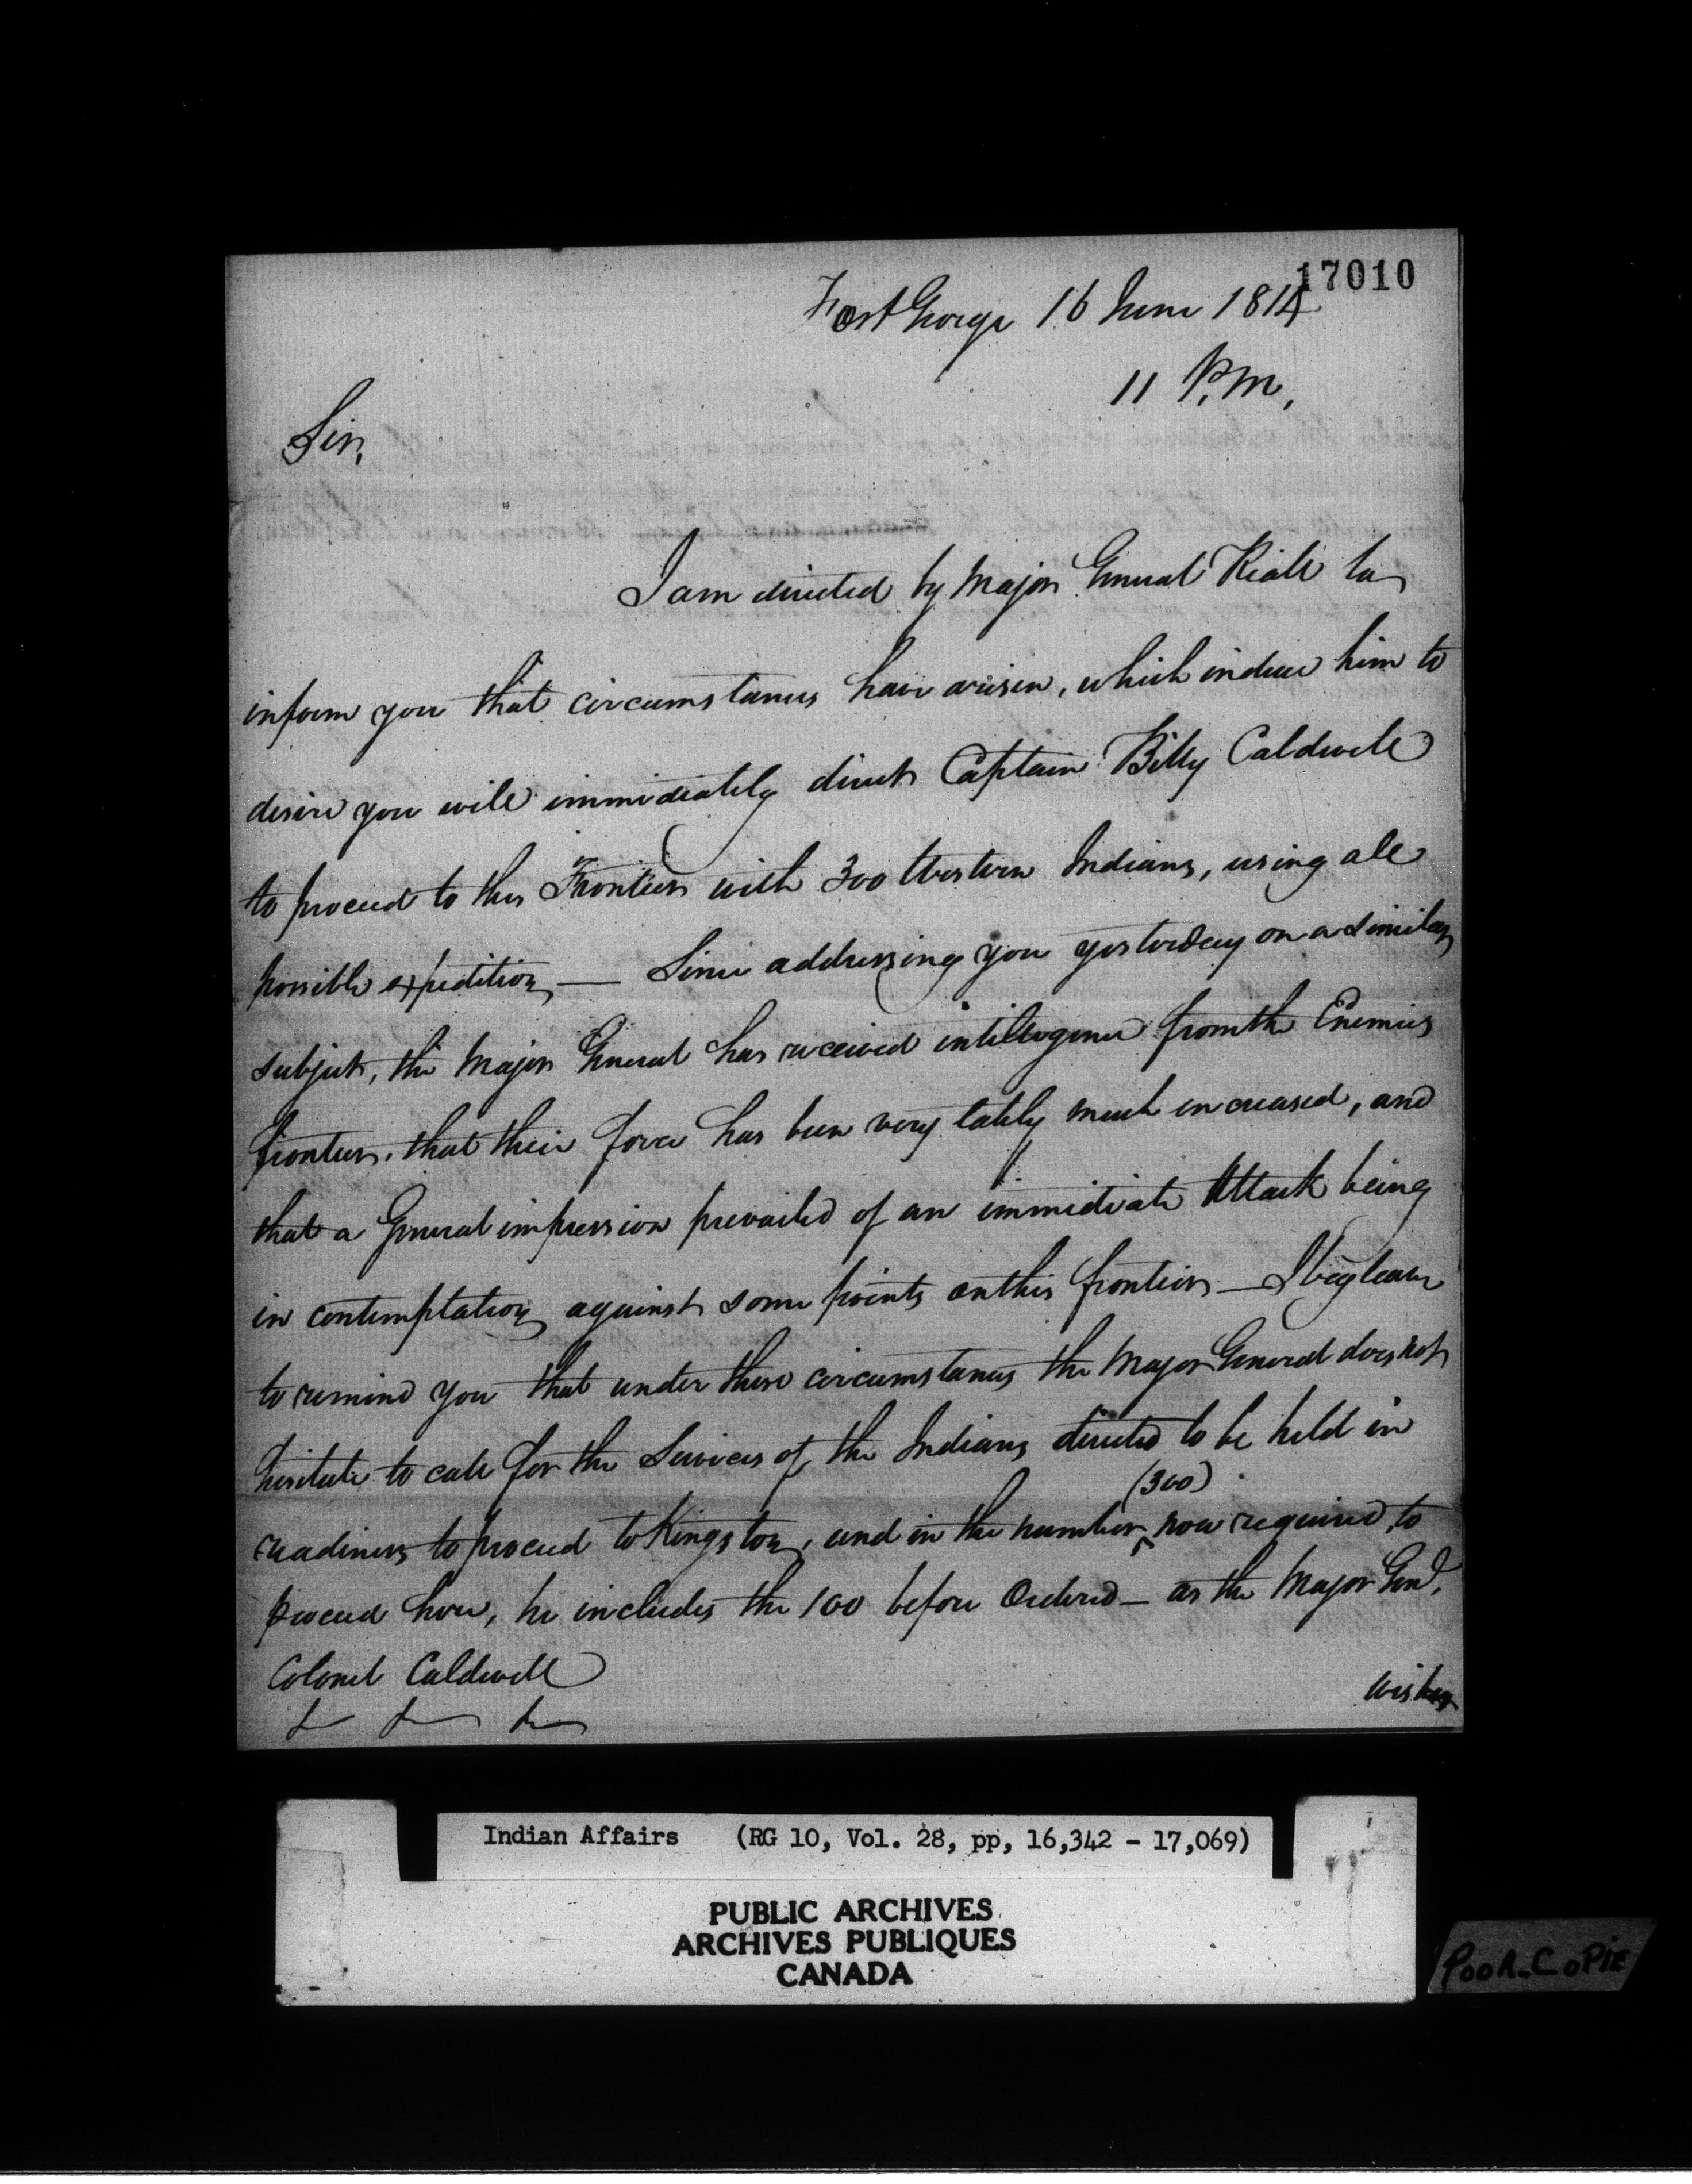 17010
Fort George 16 June 1814
11 P.M.
Sir,
I am directed by Major General Riall to
inform you that circumstances have arisen, which induce him to
desire you will immediately direct Captain Billy Caldwell
to proceed to this Frontier with 300 Western Indians, using all
possible expedition, — Since addressing you yesterday on a similar
subject, the Major General has received intelligence from the Enemies
frontier, that their force has been very lately much encreased, and
that a General impression prevailed of an immediate Attack being
in contemptation against some points on this frontier — I beg leave
to remind you that under these circumstances the Major General does not
hesitate to call for the Services of the Indians directed to be held in
readiness to proceed to Kingston, and in the number ^ (300) now required to
proceed here, he includes the 100 before Ordered — as the Major Genl.
Colonel Caldwell
wishes
Indian Affairs (RG 10, Vol. 28, pp, 16,342 - 17,069)
PUBLIC ARCHIVES
ARCHIVES PUBLIQUES
CANADA
POOR-COPIE